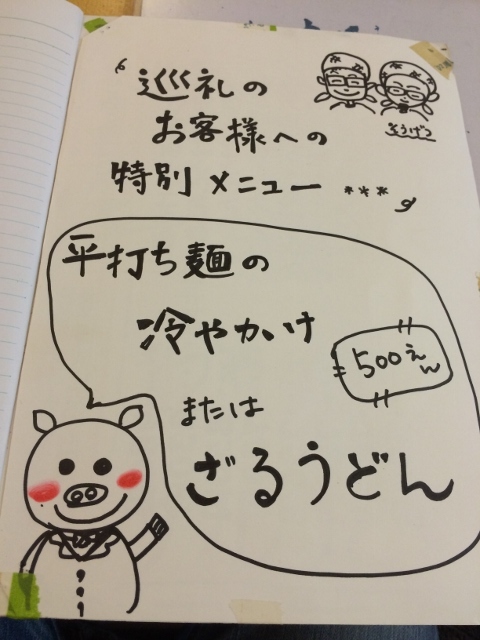 巡礼の
お客様への
特別メニュー ***
平打ち麺の
冷やかけ
500えん
または
ざるうどん